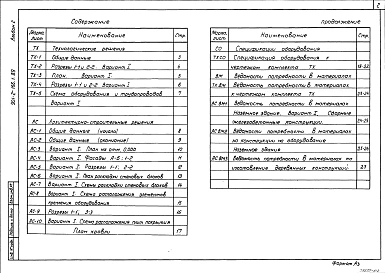 2
Содержание
Марка, лист
Наименование
Стр.
ТХ
Технологические решения
ТХ-1
Общие данные
3
ТХ-2
Разрезы 1-1 и 2-2 Вариант I
4
ТХ-3
План. Вариант I
5
ТХ-4
Разрезы 1-1 и 2-2 Вариант I
6
ТХ-5
Схема оборудования и трубопроводов
7
Вариант I
АС
Архитектурно-строительные решения
АС-1
Общие данные (начало)
8
АС-2
Общие данные (окончание)
9
АС-3
Вариант I. План на отм. 0.000
10
АС-4
Вариант I. Фасады А-Б; 1-2
11
АС-5
Вариант I. Разрезы 1-1; 2-2
12
АС-6
Вариант I. План раскладки стеновых блоков
13
АС-7
Вариант I. Схемы раскладки стеновых блоков
14
АС-8
Вариант I. Схема расположения элементов
крепления оборудования
15
АС-9
Разрезы 1-1, 3-3
16
АС-10
Вариант I. Схема расположения плит покрытия
План кровли
17
продолжение
Марка, лист
Наименование
Стр.
СО
Спецификации оборудования
ТХ СО
Спецификация оборудования к
чертежам комплекта ТХ
18-22
ВМ
Ведомости потребности в материалах
ТХ ВМ
Ведомость потребности в материалах
к чертежам комплекта ТХ
23-24
АС ВМ1
Ведомость потребности в материалах
Наземное здание. Вариант I, Сборные
железобетонные конструкции.
АС ВМ2
Ведомость потребности в материалах
на конструкции по оборудованию
Наземное здание
АС ВМ3
Ведомость потребности в материалах на
изготовление деревянных конструкций
27
Формат А3